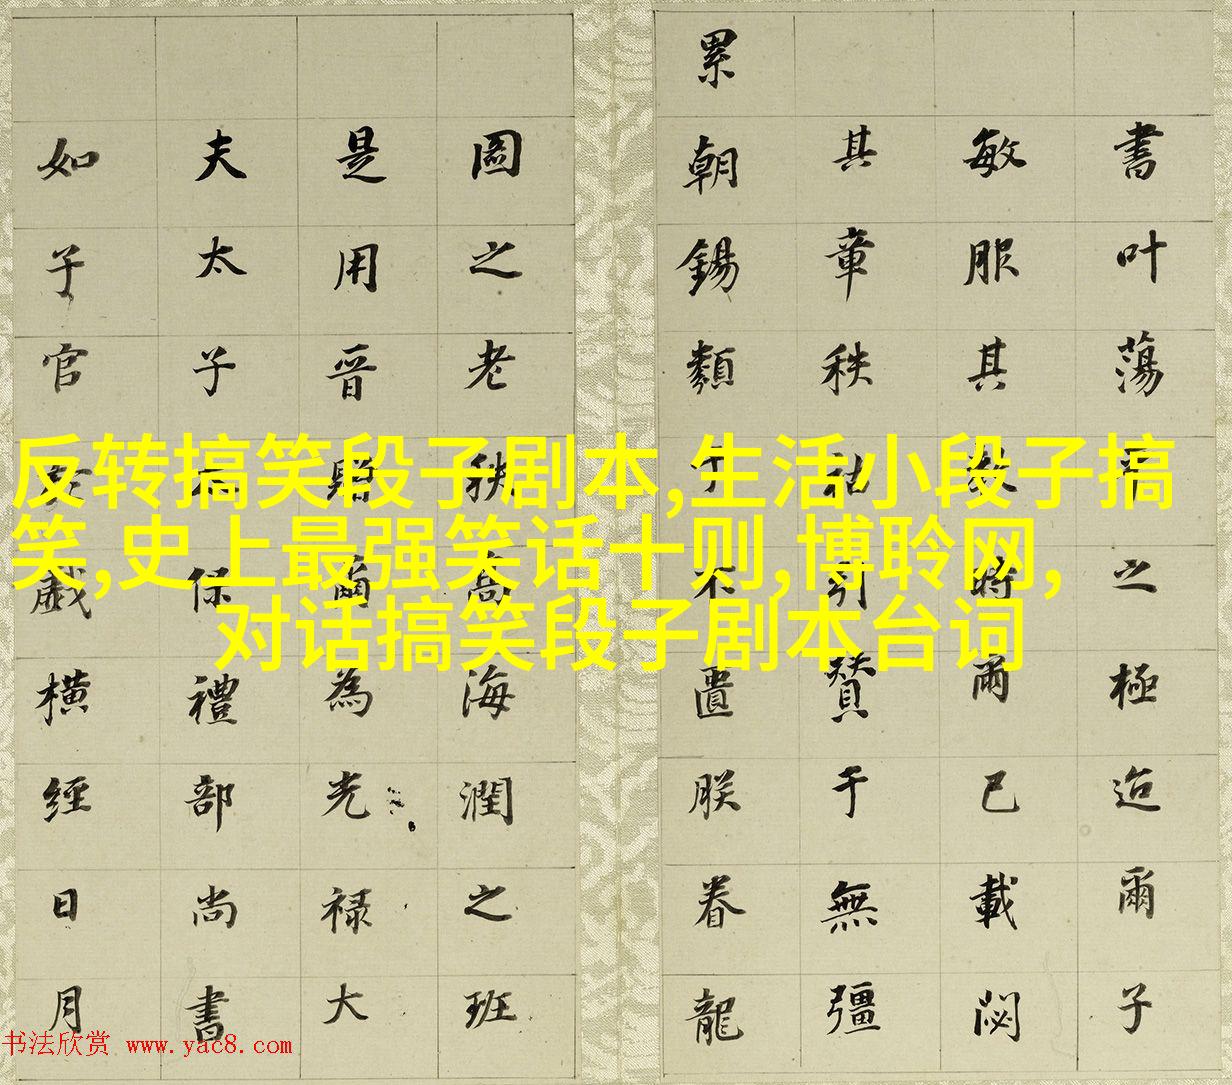 書叶蕩平之極迨爾子
敏服其爾已載閟
其章秩祜引贊于無彊
累朝錫類于不遺朕眷龍
圖之老秩高海潤之班
是用晋贈爾為光禄大
夫太子太保禮部尚書
如子官於戲橫經日月
反转搞笑段子剧本,生活小段子搞
笑,史上最强笑话十则,博聆网,
对话搞笑段子剧本台词
书法欣赏 www.yac8.com